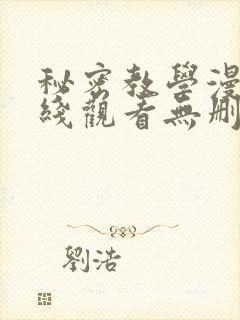 秘密教學漫
綫觀看無刪
劉浩